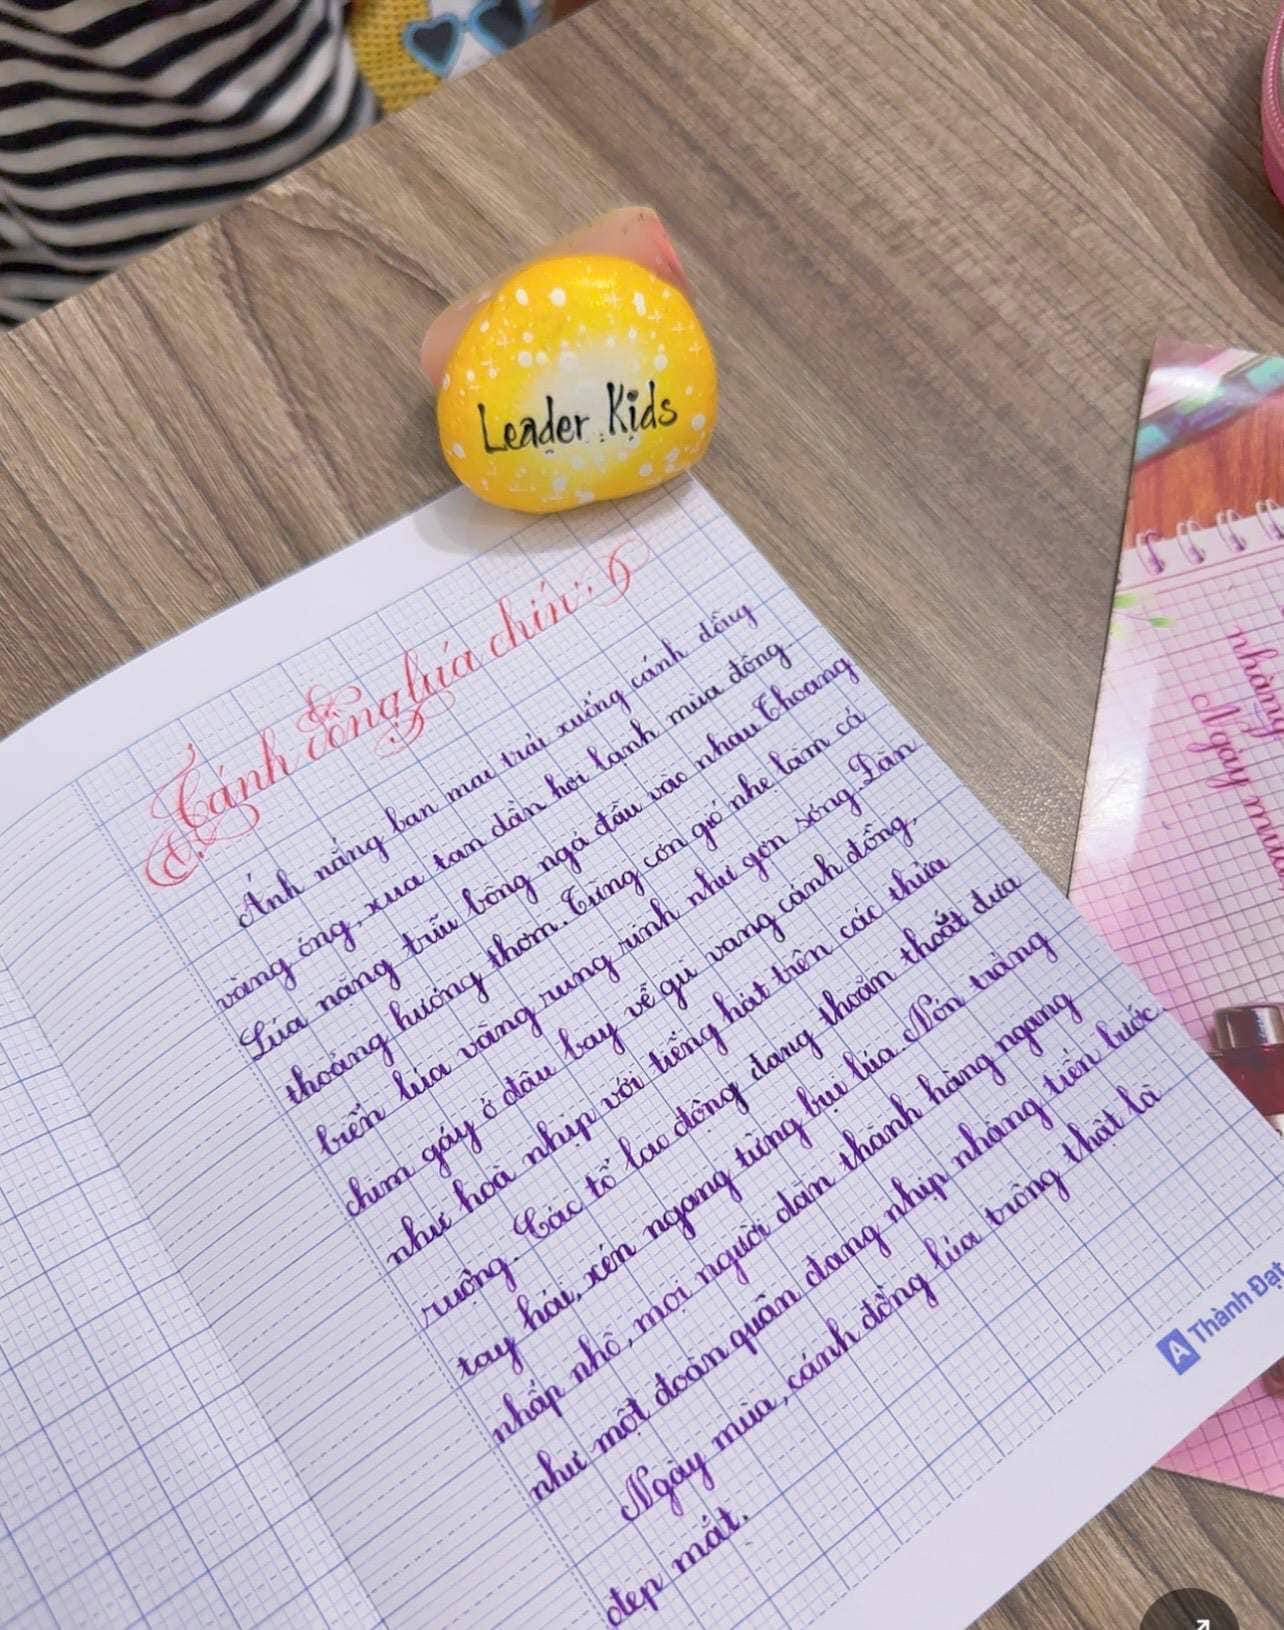 Leader Kids
Cánh đồng lúa chín
Ánh nắng ban mai trải xuống cánh đồng
vàng óng, xua tan dần hơi lạnh mùa đông.
Lúa nặng trĩu bông ngả đầu vào nhau. Thoang
thoảng hương thơm. Từng cơn gió nhẹ làm cả
biển lúa vàng rung rinh như gợn sóng. Đàn
chim gáy ở đâu bay về gù vang cánh đồng,
như hoà nhịp với tiếng hát trên các thửa
ruộng. Các tổ lao động đang thoăn thoắt đưa
tay hái, xén ngang từng bụi lúa. Nón trắng
nhấp nhô, mọi người dàn thành hàng ngang
như một đoàn quân đang nhịp nhàng tiến bước.
Ngày mùa, cánh đồng lúa trông thật là
đẹp mắt.
A Thành Đạt
nhàng
Ngày mùa